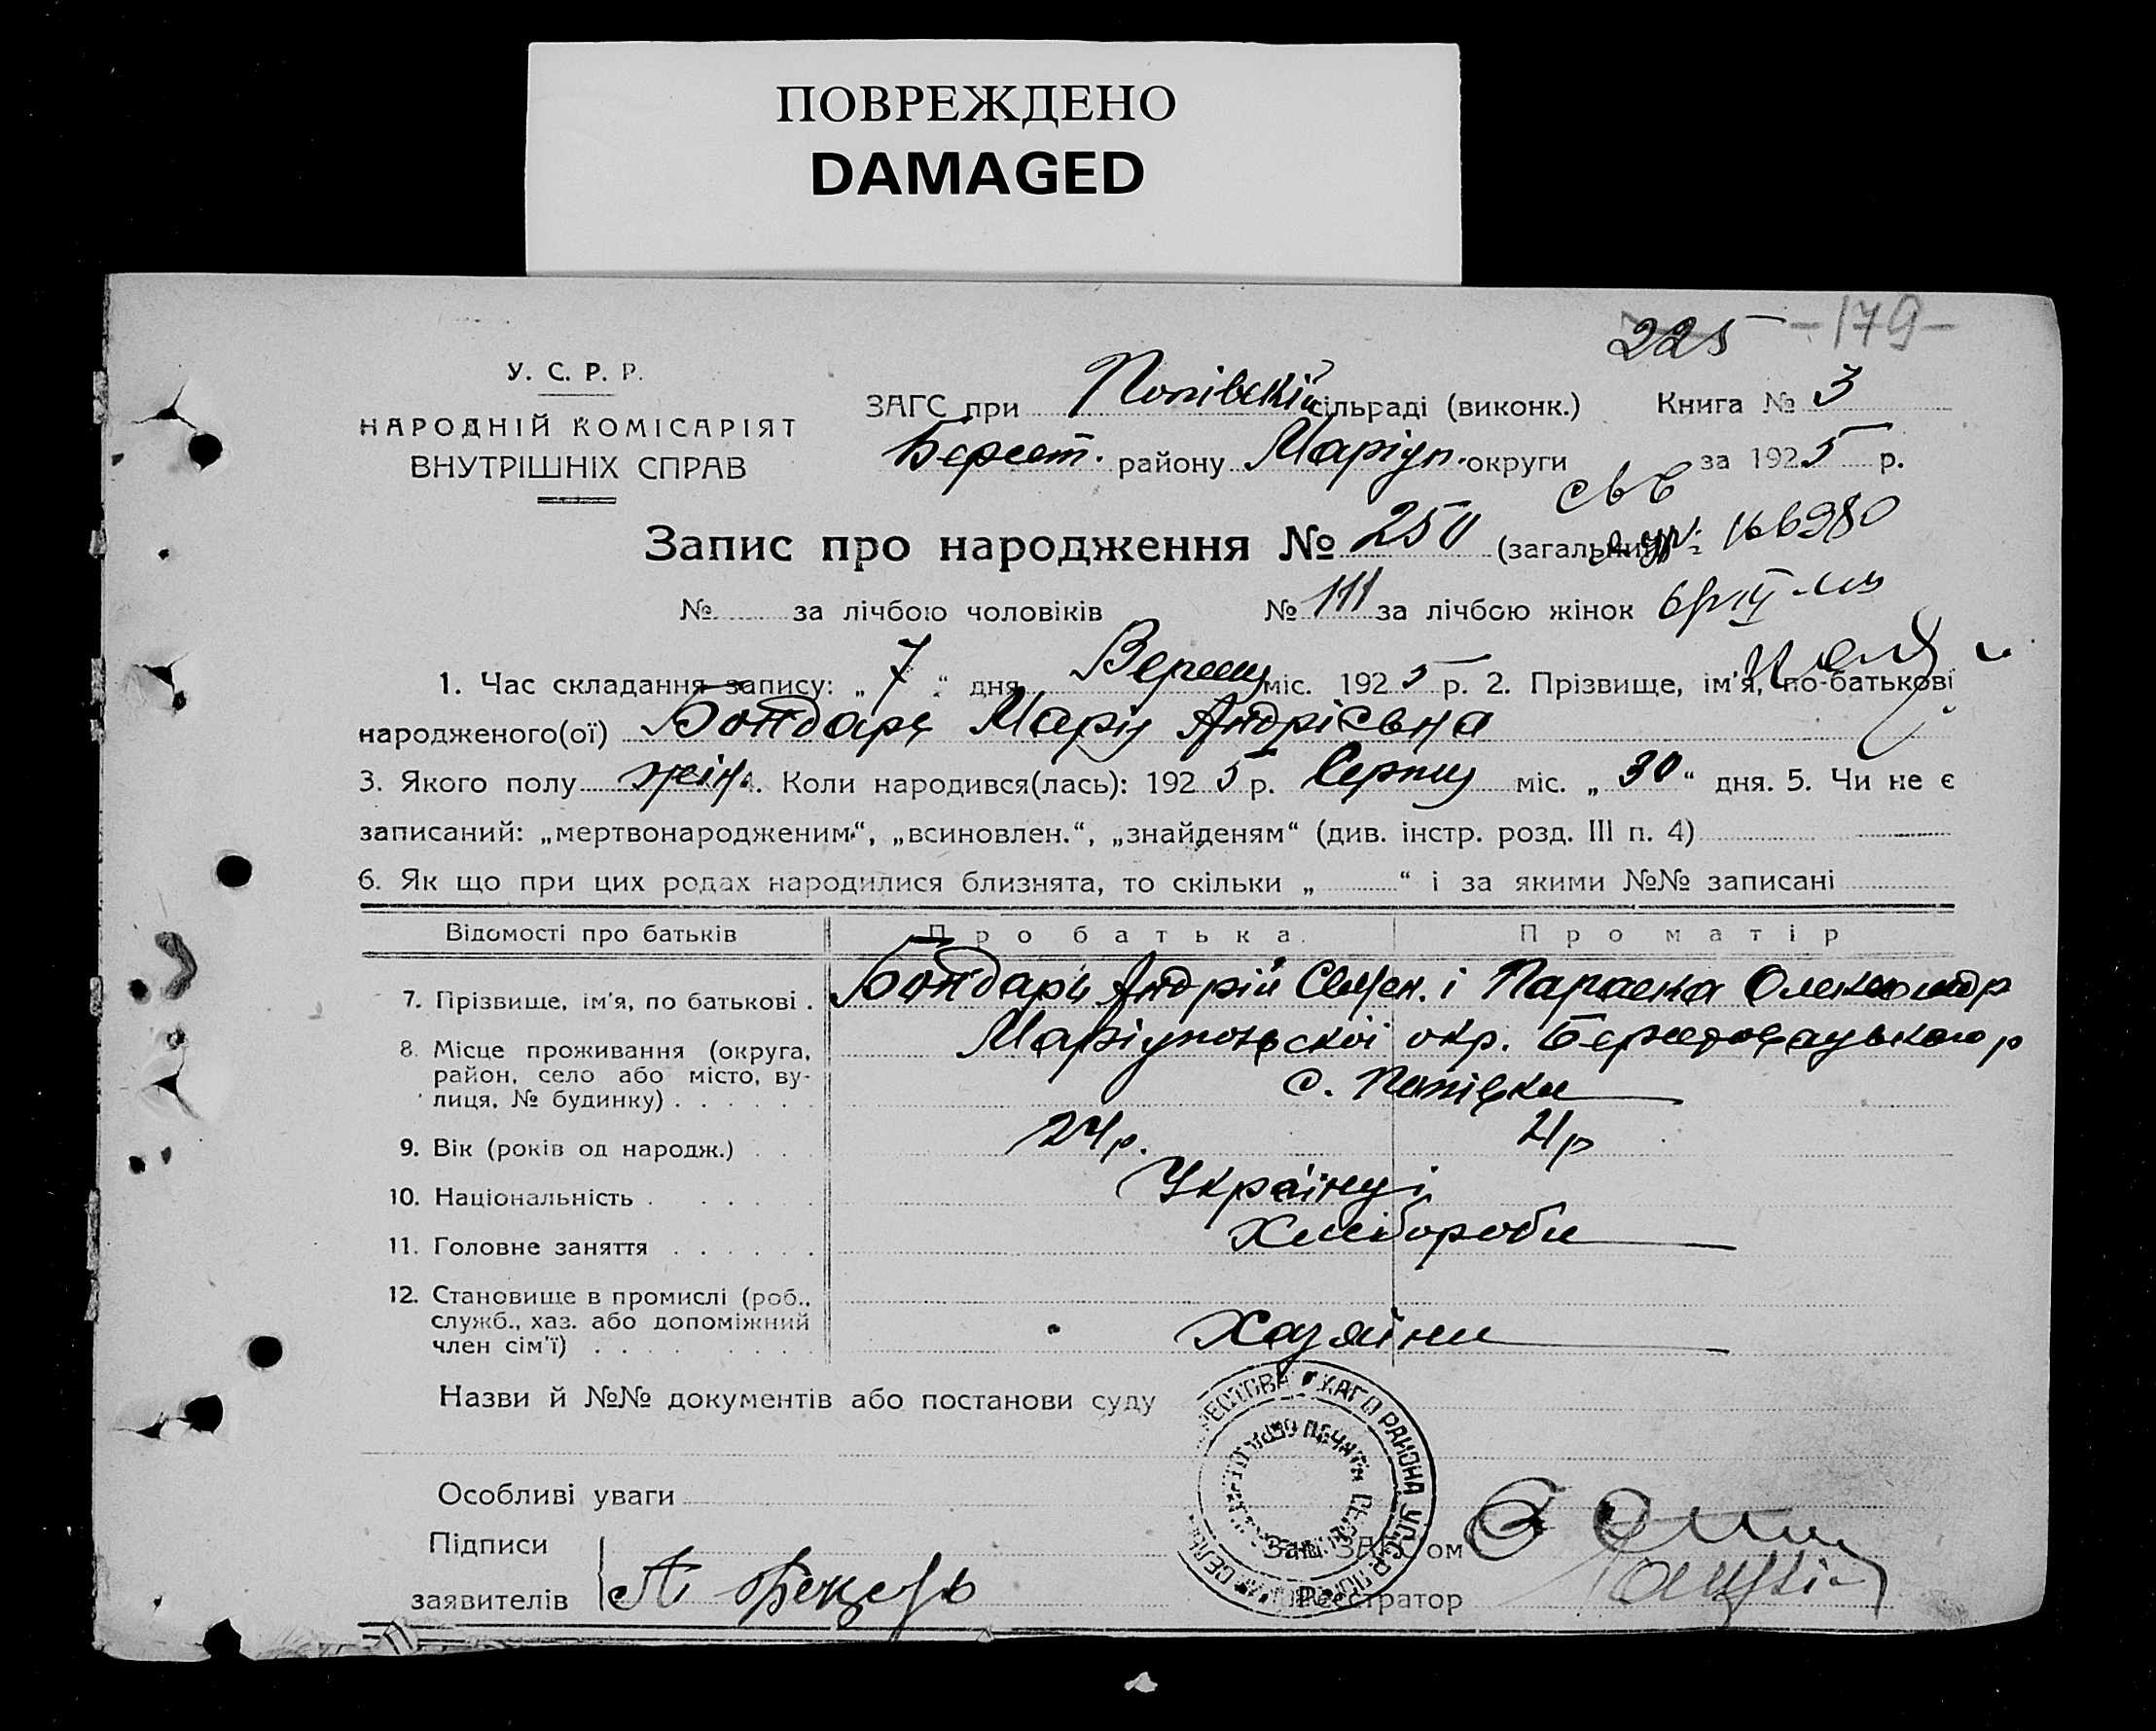 ПОВРЕЖДЕНО
DAMAGED
225 -179-
У. С. Р. Р.
НАРОДНІЙ КОМІСАРІЯТ
ВНУТРІШНІХ СПРАВ
ЗАГС при Попівській сільраді (виконк.) Книга № 3
Берест. району Маріуп. округи за 1925 р.
Запис про народження № 250 (загальний)
166980
№ за лічбою чоловіків № 111 за лічбою жінок
1. Час складання запису: „ 7 “ дня Верешня міс. 1925 р. 2. Прізвище, ім'я, по-батькові
народженого(ої) Бондарь Марія Андрієвна
3. Якого полу жін. 4. Коли народився(лась): 1925 р. Серпня міс. „ 30 “ дня. 5. Чи не є
записаний: „мертвонародженим“, „всиновлен.“, „знайденям“ (див. інстр. розд. III п. 4)
6. Як що при цих родах народилися близнята, то скільки „ “ і за якими №№ записані
Відомості про батьків Про батька. Про матір
7. Прізвище, ім'я, по батькові . Бондарь Андрій Семен. і Параска Олександр
8. Місце проживання (округа, Маріупольскої окр. Берестовацького р
район, село або місто, ву-
лиця, № будинку) . . . . . . с. Попівка
9. Вік (років од народж.) . . . 24р. 21р
10. Національність . . . . . Українці
11. Головне заняття . . . . . . Хлібороби
12. Становище в промислі (роб.,
служб., хаз. або допоміжний
член сім'ї) . . . . . . . . . Хазяїни
Назви й №№ документів або постанови суду
Особливі уваги
Підписи
заявителів
Зав. ЗАГС'ом
Реєстратор